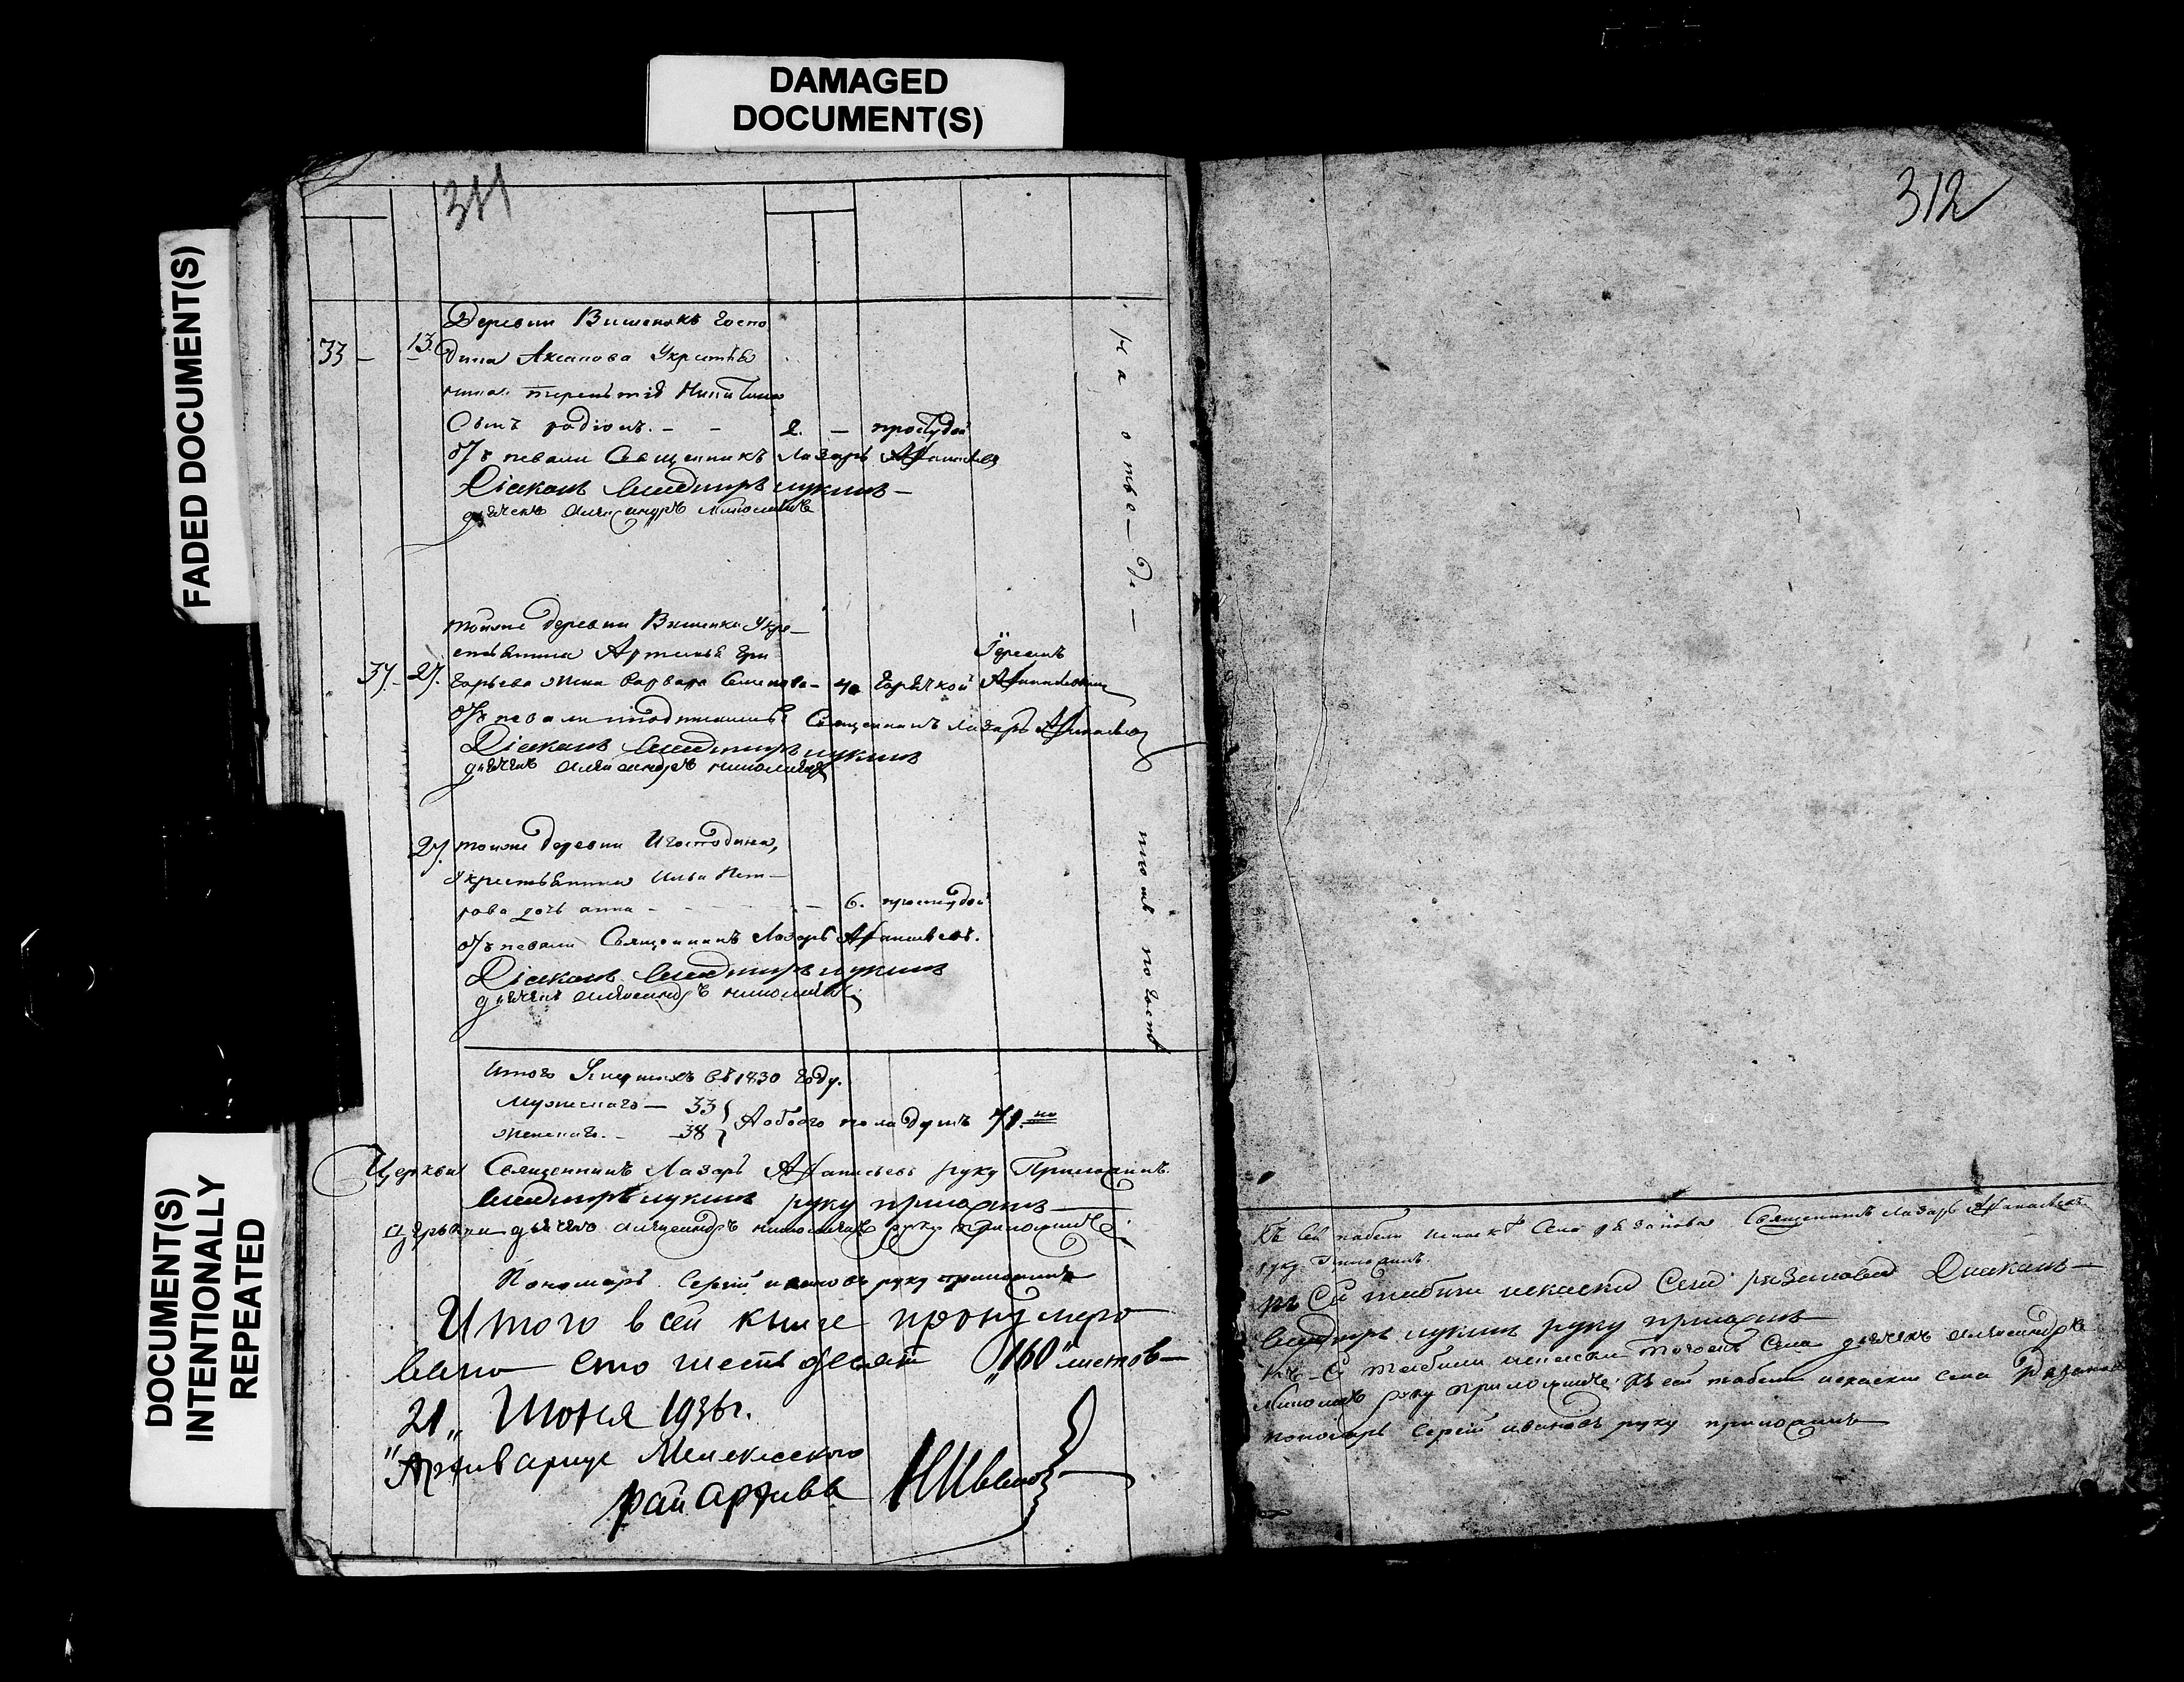 DAMAGED
DOCUMENT(S)
FADED DOCUMENT(S)
DOCUMENT(S)
INTENTIONALLY
REPEATED
311
Деревни Вишенокъ госпо
33 — 13. дина Аксакова Укрестья
нина терентія Никитина
Сынъ родіонъ. — — 2. — простудой
отпевали Священникъ Лазарь Афанасьевъ
Діаконъ Владимиръ лукинъ —
дьячекъ Александръ Николаевъ
На отве—де—
тойже деревни Вишенки Укре—
стьянина Артемья гри
37. — 27. горьева жена варвара Семенова — 40 горячкой Афанасьевъ
отпевали Священникъ Лазарь Афанасьевъ
Діаконъ Владимиръ лукинъ
дьячекъ Александръ николаевъ
27. тойже деревни Игосподина,
Укрестьянина Ильи Пет—
рова дочь анна — — — — 6. простудой
отпевали Священникъ Лазарь Афанасьевъ.
Діаконъ Владимиръ лукинъ
дьячекъ Александръ николаевъ
Итого Умершихъ въ 1830 году.
Мужескаго — 33
женскаго. — 38 Аобоего пола душъ 71.
Церкви Священникъ Лазарь Афанасьевъ руку Приложилъ.
Владимиръ лукинъ руку приложилъ
церькви дьячекъ Александръ николаевъ руку приложилъ
Пономарь Сергій ивановъ руку приложилъ
Итого в сей книге пронумеро
вано сто шестьдесят „160" листов —
„21„ Июня 1936 г.
Архивариус Мелекесского
райархива
312
Къ сей табели Священникъ Лазарь Афанасьевъ
руку приложилъ.
къ Сей табели Села резановай Диаконъ —
Владимиръ лукинъ руку приложилъ
къ Сей табели тогожъ Села дьячекъ Александръ
Николаевъ руку приложилъ. къ сей табели села Рязанова
пономарь Сергій ивановъ руку приложилъ